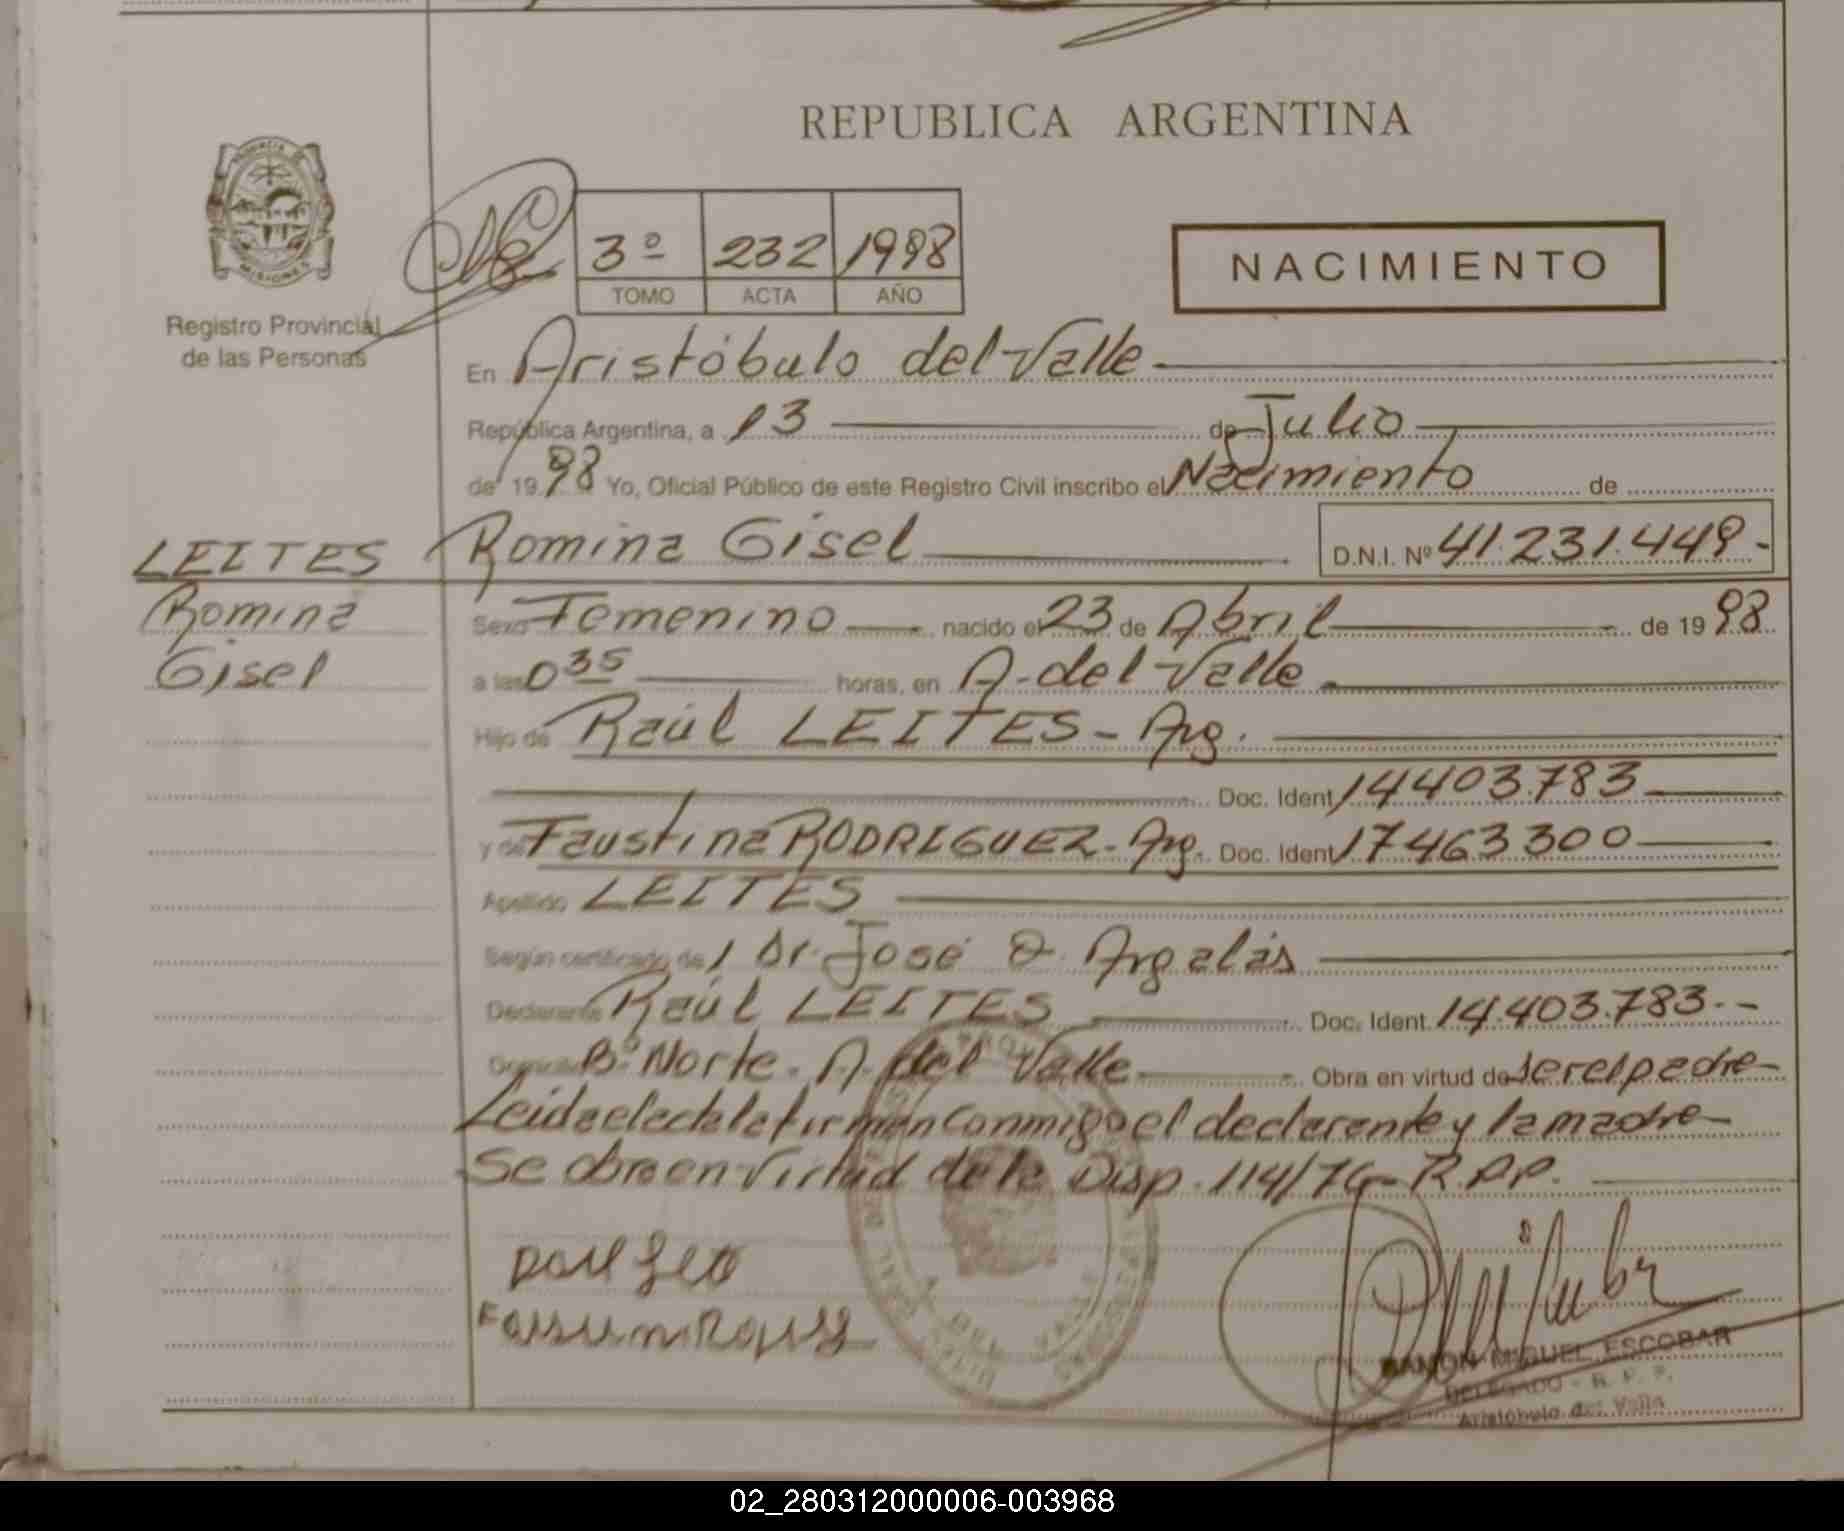 REPUBLICA ARGENTINA
PROVINCIA DE
MISIONES
Registro Provincial
de las Personas
3º 232 1998
TOMO ACTA AÑO
NACIMIENTO
En Aristóbulo del Valle
República Argentina, a 13 de Julio
de 1998 Yo, Oficial Público de este Registro Civil inscribo el Nacimiento de
LEITES Romina Gisel D.N.I. Nº 41.231.449.-
Romina
Gisel
Sexo Femenino nacido el 23 de Abril de 1998
a las 0 35 horas, en A. del Valle
Hijo de Raúl LEITES - Arg.
Doc. Ident 14403.783
y de Faustina RODRIGUEZ - Arg. Doc. Ident 17463300
Apellido LEITES
Según certificado de 1 Dr. José O. Argalás
Declarante Raúl LEITES Doc. Ident. 14.403.783.-
Domicilio Bº Norte. A. del Valle Obra en virtud de ser el padre
Leida el acta la firman conmigo el declarante y la madre
Se obra en virtud de la Disp. 114/76 - R.P.P.
RAMON MIGUEL ESCOBAR
DELEGADO - R. P. P.
Aristóbulo del Valle
02_280312000006-003968